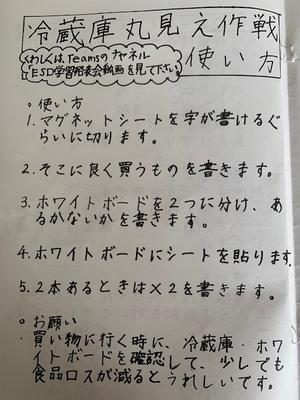 冷蔵庫丸見え作戦
くわしくは、Teamsのチャネル
「ESD学習発表会動画を見て下さい。
使い方
○使い方
1.マグネットシートを字が書けるぐ
らいに切ります。
2.そこに良く買うものを書きます。
3.ホワイトボードを2つに分け、あ
るかないかを書きます。
4.ホワイトボードにシートを貼ります。
5.2本あるときは×2を書きます。
○お願い
買い物に行く時に、冷蔵庫・ホワ
イトボードを確認して、少しでも
食品ロスが減るとうれしいです。